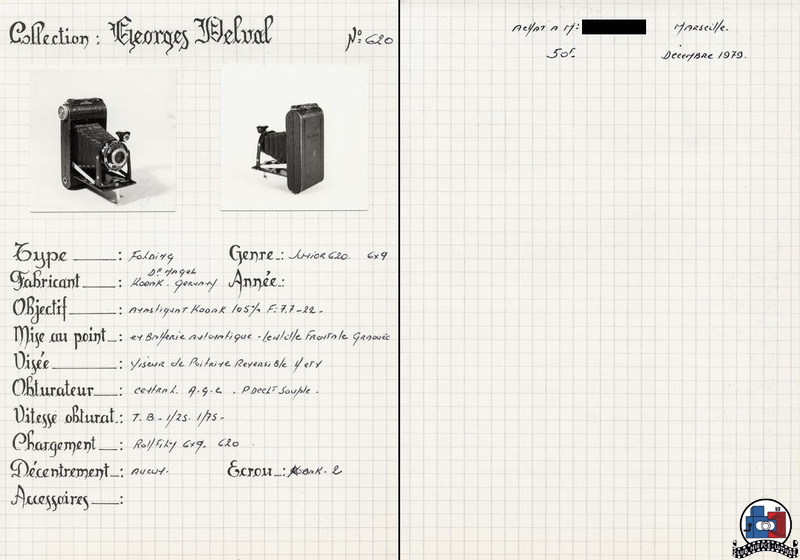 Collection : Georges Delval
No: 620
Type : Folding
Genre : Junior 620. 6x9
Dr Nagel
Fabricant : Kodak. Germany
Année :
Objectif : Anastigmat Kodak 105% F: 7.7-22.
Mise au point : en Batterie Automatique - lentille Frontale Graduée
Visée : Viseur de Poitrine Reversible H et V
Obturateur : central. A.G.C. Pdecl<sup>t</sup> Souple.
Vitesse obturat. : T. B - 1/25. 1/75 -
Chargement : Rollfilm 6x9. 620
Décentrement : Aucun.
Ecrou : Kodak. 2
Accessoires :
Achat a Mr: Marseille.
50f. Décembre 1979.